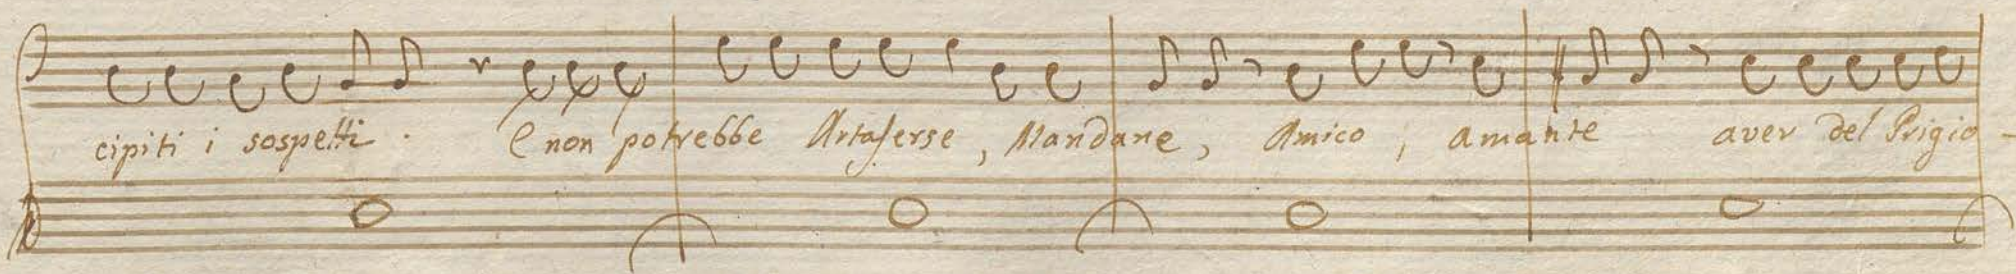 cipiti i sospetti. E non potrebbe Artaserse, Mandane, Amico, amante aver del Prigio-